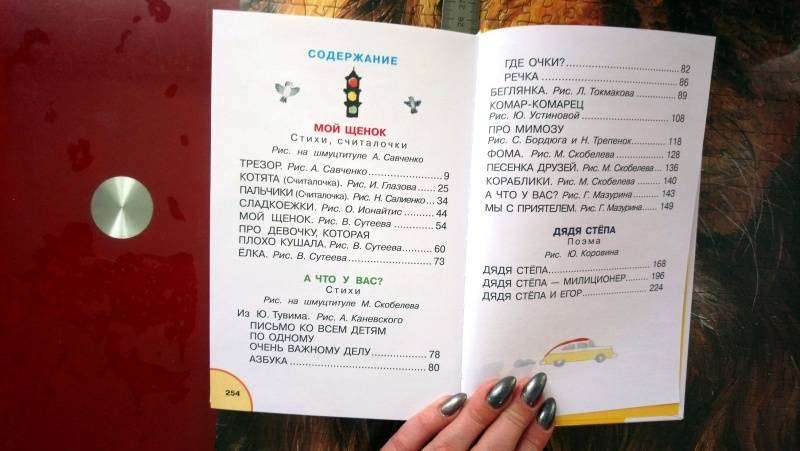 СОДЕРЖАНИЕ
МОЙ ЩЕНОК
Стихи, считалочки
Рис. на шмуцтитуле А. Савченко
ТРЕЗОР. Рис. А. Савченко 9
КОТЯТА (Считалочка). Рис. И. Глазова 25
ПАЛЬЧИКИ (Считалочка). Рис. Н. Салиенко 34
СЛАДКОЕЖКИ. Рис. О. Ионайтис 44
МОЙ ЩЕНОК. Рис. В. Сутеева 54
ПРО ДЕВОЧКУ, КОТОРАЯ
ПЛОХО КУШАЛА. Рис. В. Сутеева 60
ЁЛКА. Рис. В. Сутеева 73
А ЧТО У ВАС?
Стихи
Рис. на шмуцтитуле М. Скобелева
Из Ю. Тувима. Рис. А. Каневского
ПИСЬМО КО ВСЕМ ДЕТЯМ
ПО ОДНОМУ
ОЧЕНЬ ВАЖНОМУ ДЕЛУ 78
АЗБУКА 80
254
ГДЕ ОЧКИ? 82
РЕЧКА 86
БЕГЛЯНКА. Рис. Л. Токмакова 89
КОМАР-КОМАРЕЦ
Рис. Ю. Устиновой 108
ПРО МИМОЗУ
Рис. С. Бордюга и Н. Трепенок 118
ФОМА. Рис. М. Скобелева 128
ПЕСЕНКА ДРУЗЕЙ. Рис. М. Скобелева 136
КОРАБЛИКИ. Рис. М. Скобелева 140
А ЧТО У ВАС? Рис. Г. Мазурина 143
МЫ С ПРИЯТЕЛЕМ. Рис. Г. Мазурина 149
ДЯДЯ СТЁПА
Поэма
Рис. Ю. Коровина
ДЯДЯ СТЁПА 168
ДЯДЯ СТЁПА — МИЛИЦИОНЕР 196
ДЯДЯ СТЁПА И ЕГОР 224